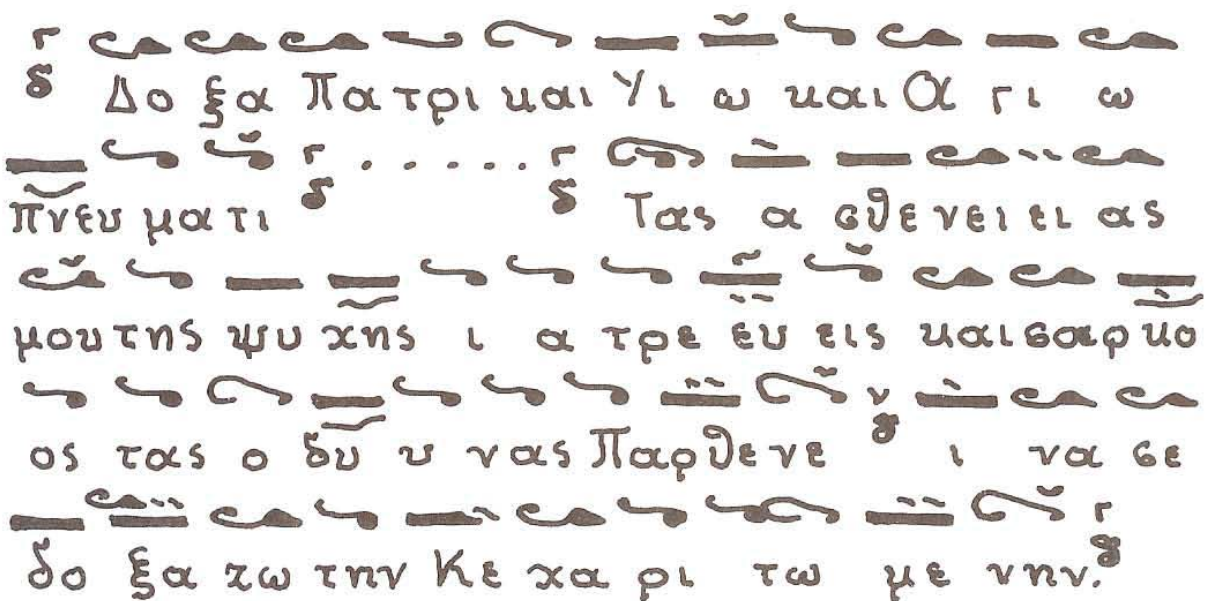 Δο ξα Πα τρι και Υι ω και Α γι ω
Πνευ μα τι Τας α σθε νει ει ας
μου της ψυ χης ι α τρε ευ εις και σαρ κο
ος τας ο δυ υ νας Παρ θε νε ι να σε
δο ξα ζω την Κε χα ρι τω με νην.